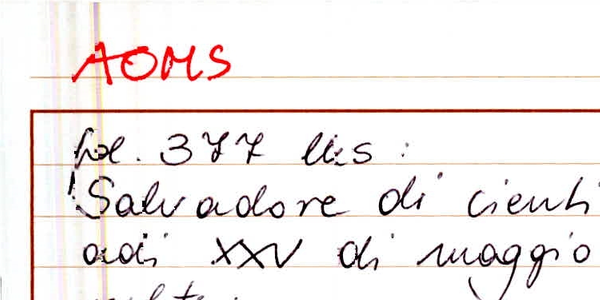 AOMS
fol. 377 bis:
Salvadore di cienti
adi XXV di maggio